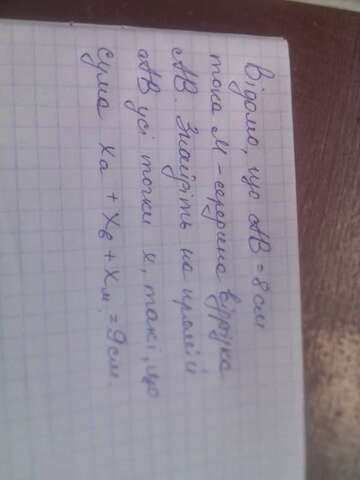 Відомо, що AB = 8 см
тока M - середина відрізка
AB. Знайдіть на прямій
AB усі точки x, такі, що
сума Xa + Xв + Xм = 9 см.